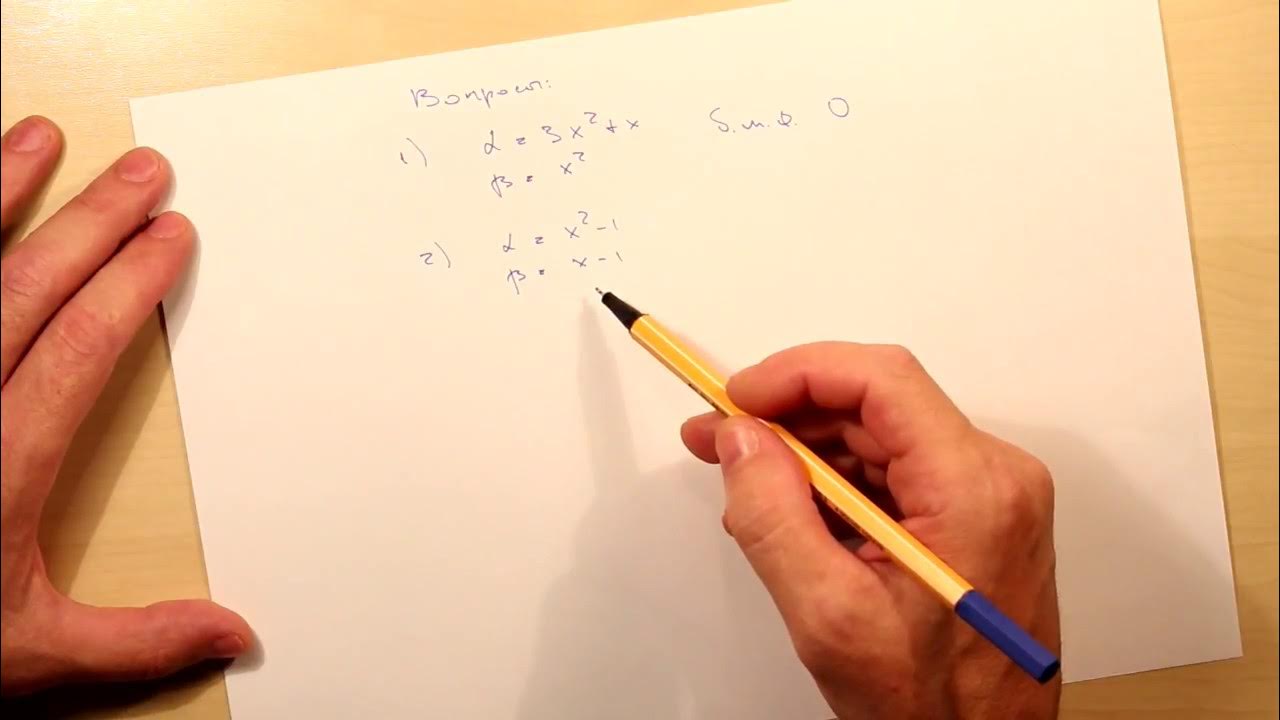 Вопросы:
1) α = 3x² + x б.м.ф. 0
β = x²
2) α = x² - 1
β = x - 1